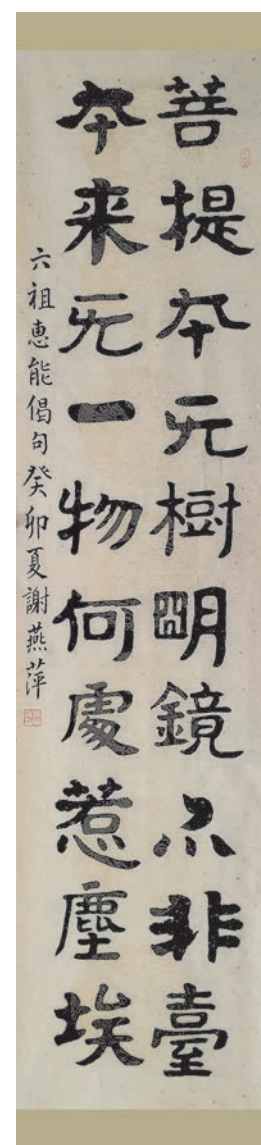 菩提本无樹明鏡亦非臺
本来无一物何處惹塵埃
六祖惠能偈句癸卯夏謝燕萍